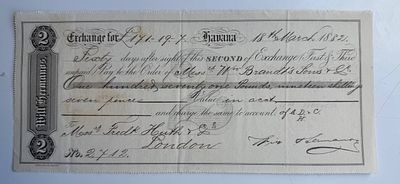 2
Will Hermanos
2
Exchange for £171-19-7. Havana 18th March 1882.
Sixty days after sight of this SECOND of Exchange (First & Third
unpaid) Pay to the Order of Messrs Wm Brandt's Sons & Co
One hundred, seventy one Pounds, nineteen shillings
seven pence Value in acct
and charge the same to account of
Messrs Fredk Huth & Co
London
No. 2712.